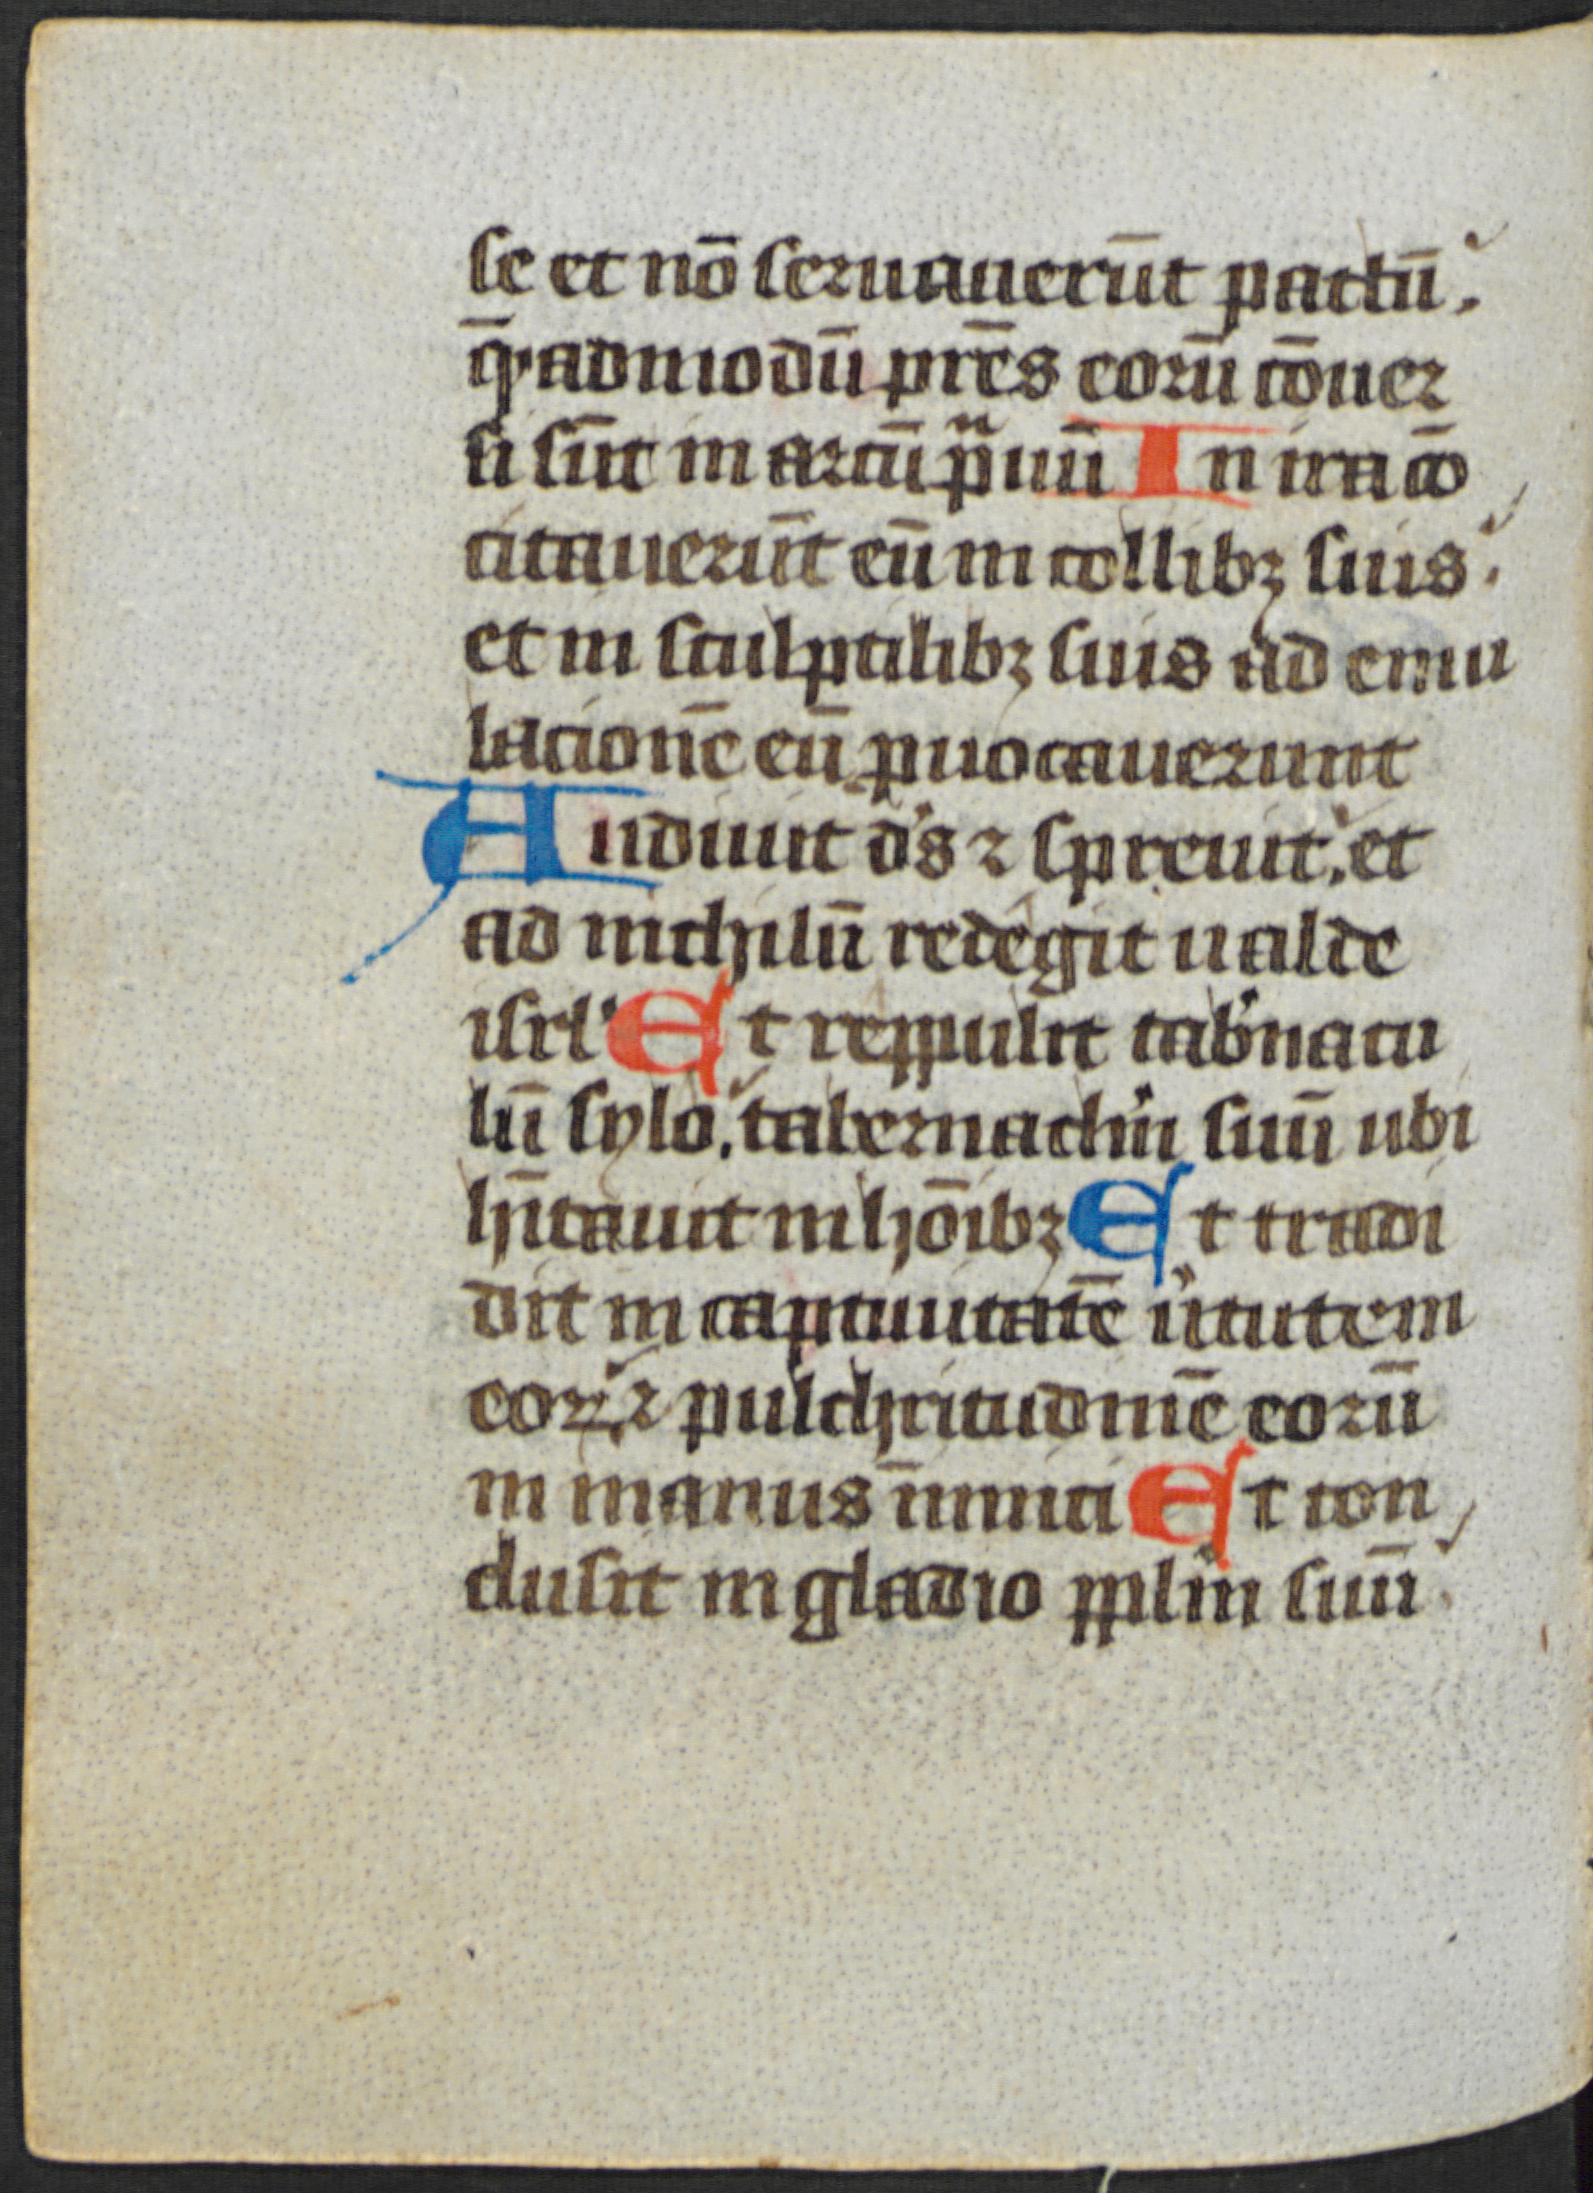 se et nō seruauerūt pactū.
q̄admodū pr̄es eorū ꝯ̄uer
si sūt in arcū p̄uū In ira co
citauerūt eū in collibꝫ suis.
et in sculptilibꝫ suis ad emu
lacionē eū ꝓuocauerunt
Audiuit d̄s ⁊ spreuit. et
ad nichilū redegit ualde
isrl' Et reppulit tab'nacu
lū sylo. tabernaclm̄ suū ubi
hītauit in hoībꝫ Et tradi
dit in captiuitatē u'tutem
eoꝝ ⁊ pulchritudinē eorū
in manus inimici Et con
clusit in gladio pplm̄ suū.